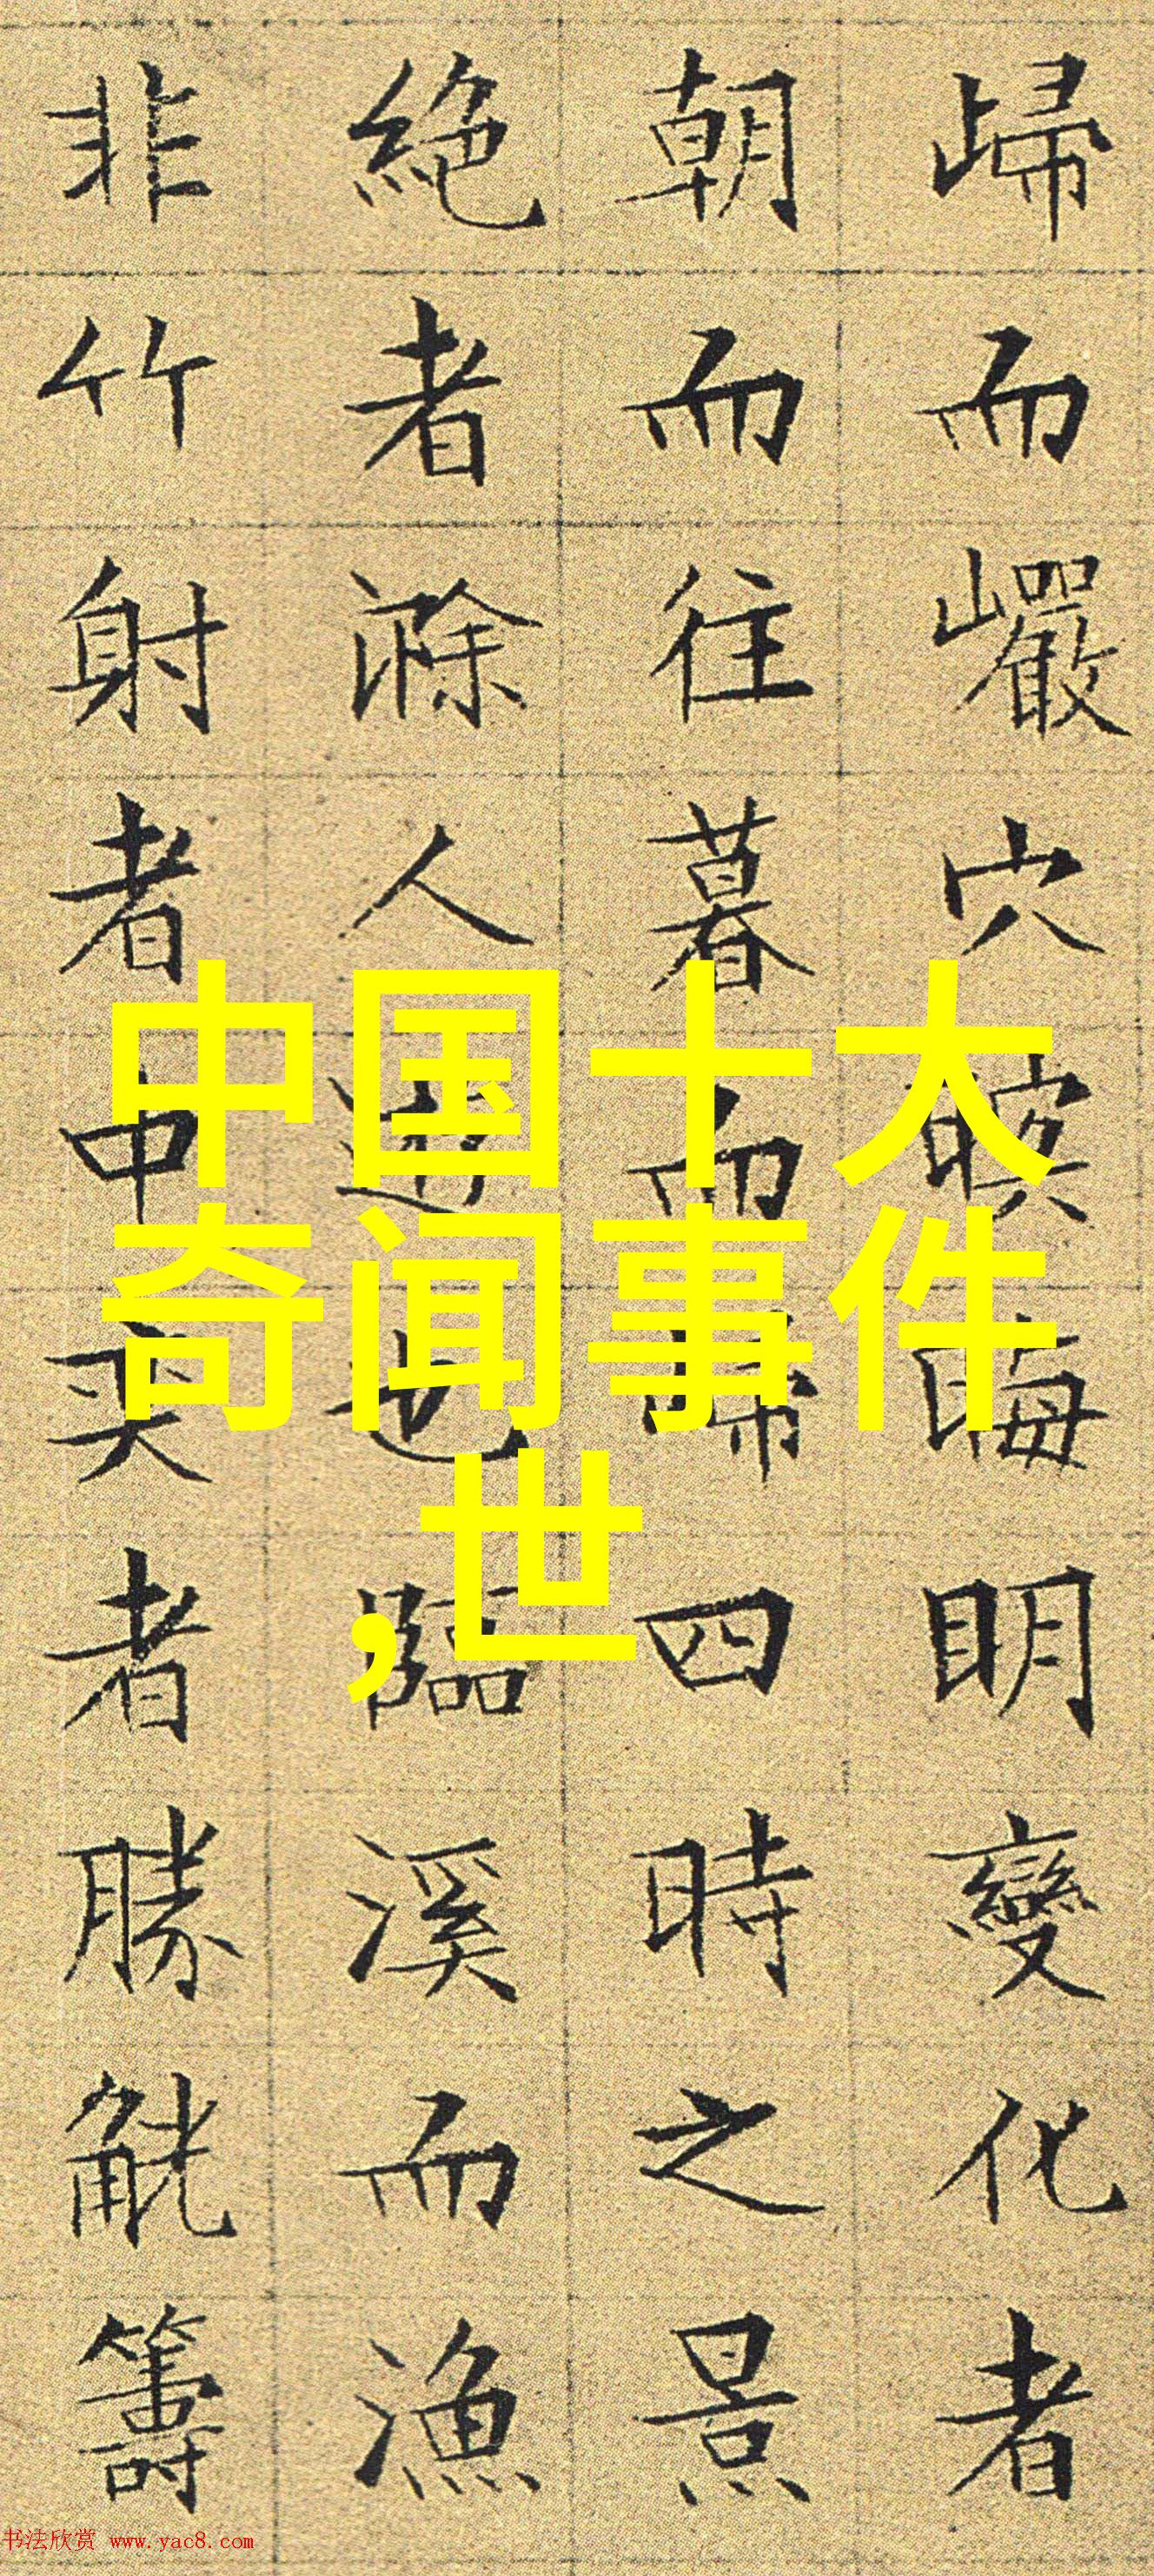 㱕而巗穴暝晦明變化者
朝而往暮而㱕四時之景
絕者滁人遊也臨溪而漁
非竹射者中奕者勝觥籌
中国十大
奇闻事件
，世
书法欣赏 www.yac8.com